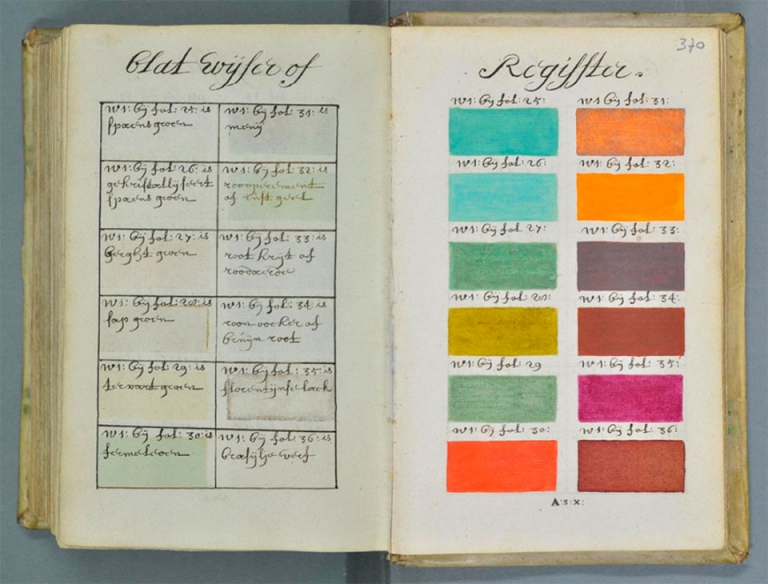 Blat wijser of
w1: bij fol: 25: is
spaens groen
w1: bij fol: 31: is
menij
w1: bij fol: 26: is
gekristallijseert
spaens groen
w1: bij fol: 32: is
of rust geel
w1: bij fol: 27: is
berght groen
w1: bij fol: 33: is
root krijt of
w1: bij fol: 28: is
sap groen
w1: bij fol: 34: is
roon oocker of
bruijn root
w1: bij fol: 29: is
groen
w1: bij fol: 35: is
florentijnse lack
w1: bij fol: 30: is
w1: bij fol: 36: is
verf
370
Registter.
w1: bij fol: 25:
w1 bij fol: 31:
w1: bij fol: 26:
w1: bij fol: 32:
w1: bij fol: 27:
w1: bij fol: 33:
w1: bij fol: 28:
w1: bij fol: 34:
w1: bij fol: 29
w1: bij fol: 35:
w1: bij fol: 30:
w1: bij fol: 36:
A:5:X: